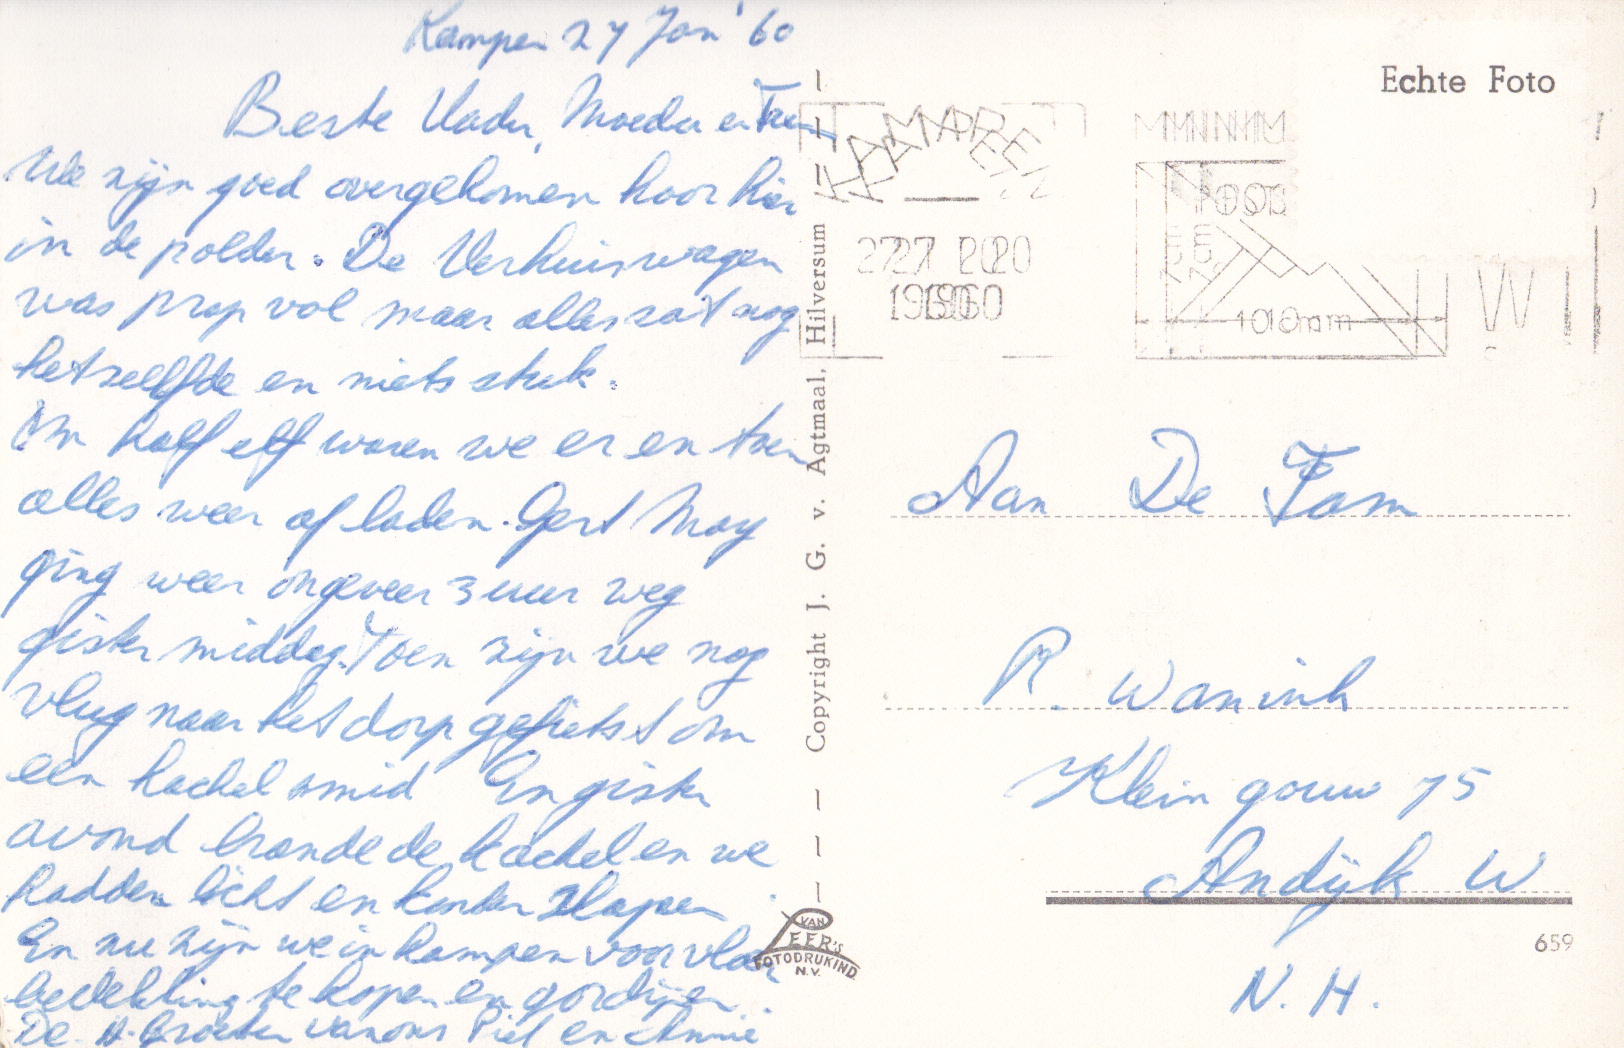 Kampen 27 Jan '60
Beste Vader, Moeder en Fam
We zijn goed overgekomen hoor hier
in de polder. De Verhuiswagen
was prop vol maar alles zat nog
hetzelfde en niets stuk.
Om half elf waren we er en toen
alles weer af laden. Gert May
ging weer ongeveer 3 uur weg
gister middag. Toen zijn we nog
vlug naar het dorp gefietst om
een kachel smid En gister
avond brande de kachel en we
hadden licht en konden slapen
En nu zijn we in Kampen voor vloer
bedekking te kopen en gordijen.
De H. Groeten van ons Piet en Annie
Copyright J. G. v. Agtmaal, Hilversum
VAN
LEER's
FOTODRUKIND.
N.V.
Echte Foto
KAMPEN
27 20
1960
MINIMUM
100
mm
Aan De Fam
P. Wanink
Kleingouw 75
Andijk W
659
N. H.